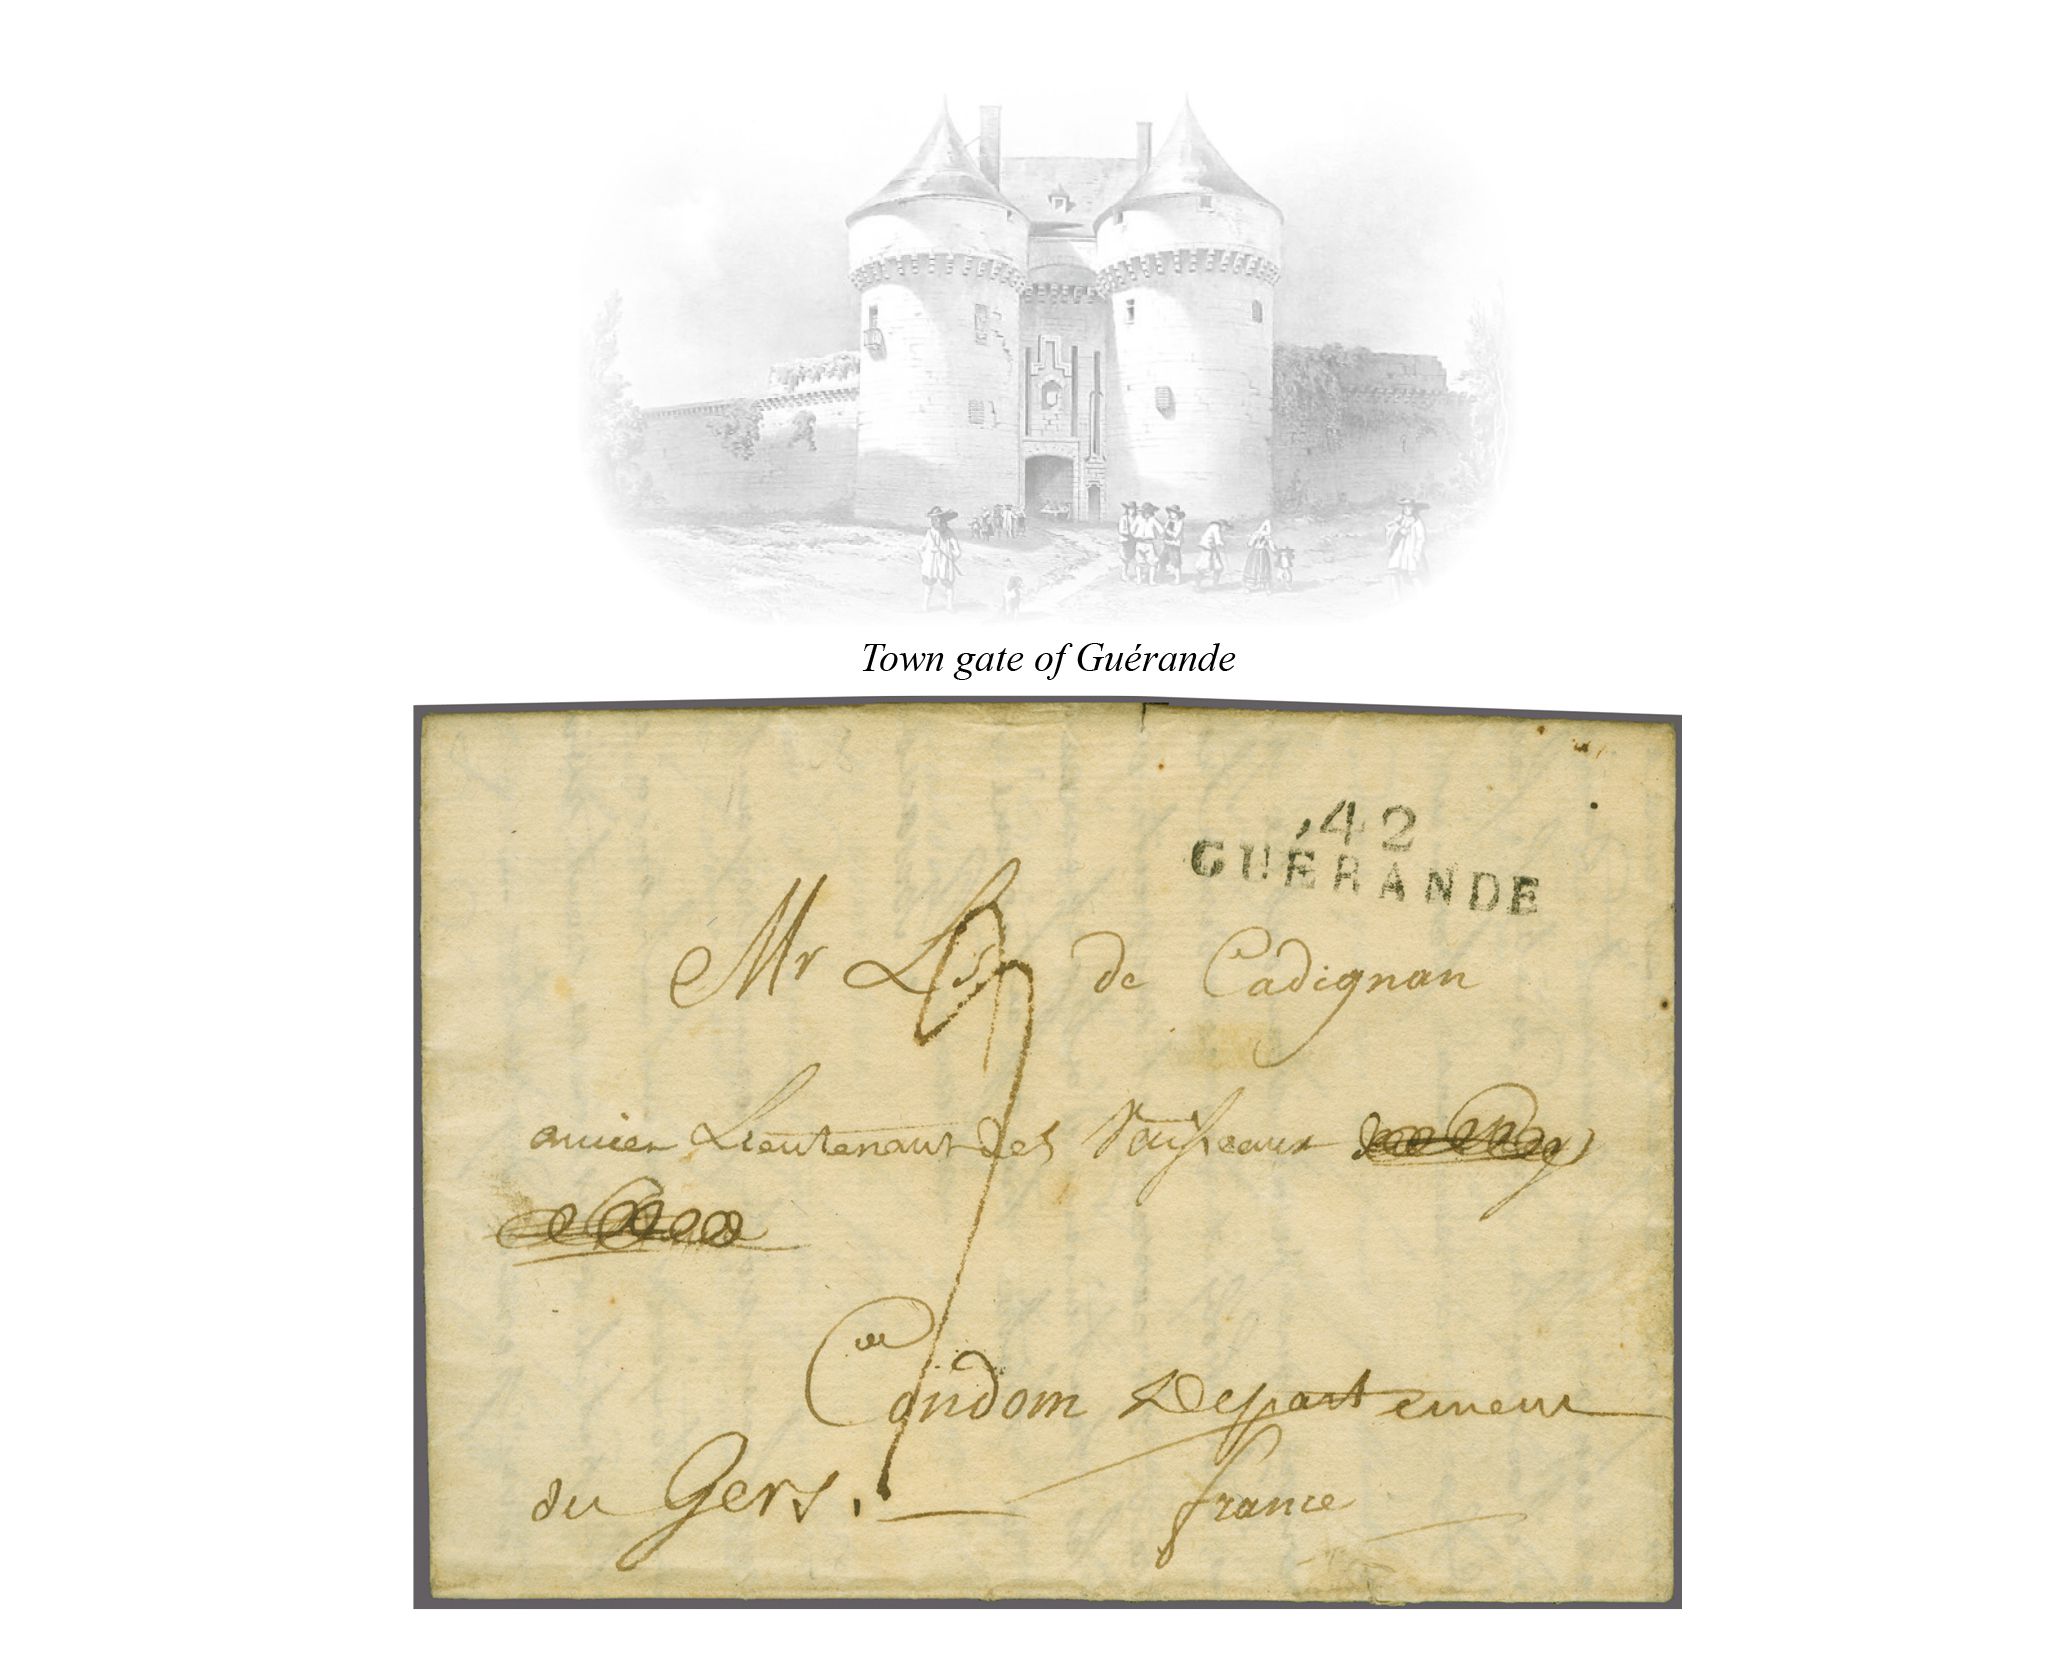 Town gate of Guérande
42
GUÉRANDE
Mr de Cadignan
ancien Lieutenant des Vaisseaux
Condom Departement
du Gers.
france